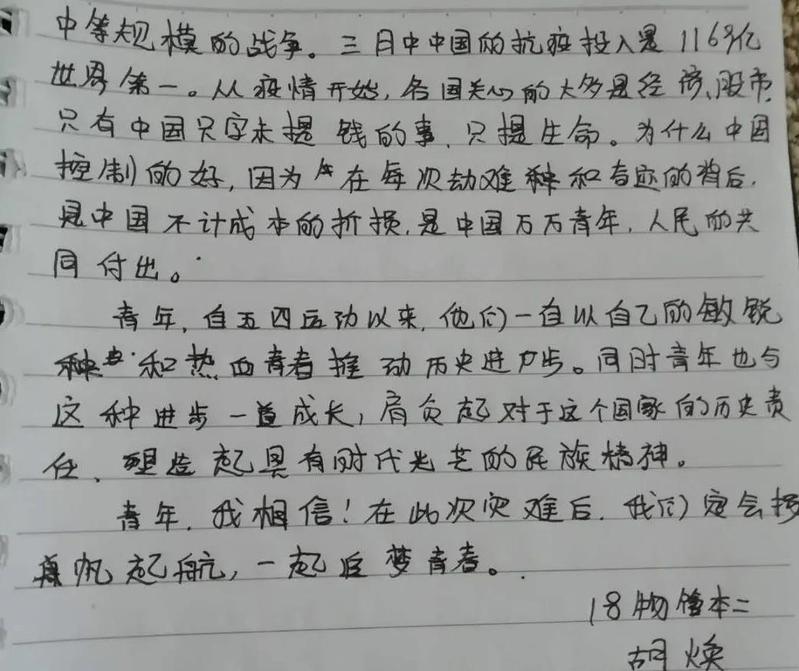 中等规模的战争。三月中中国的抗疫投入是1169亿
世界第一。从疫情开始,各国关心的大多是经济、股市,
只有中国只字未提钱的事,只提生命。为什么中国
控制的好,因为在每次劫难种和奇迹的背后,
是中国不计成本的折损,是中国万万青年,人民的共
同付出。
青年,自五四运动以来,他们一直以自己的敏锐
和热血青春推动历史进步。同时青年也与
这种进步一道成长,肩负起对于这个国家的历史责
任、塑造起具有时代光芒的民族精神。
青年,我相信!在此次灾难后,我们定会扬
帆起航,一起启梦青春。
18物管本二
胡焕